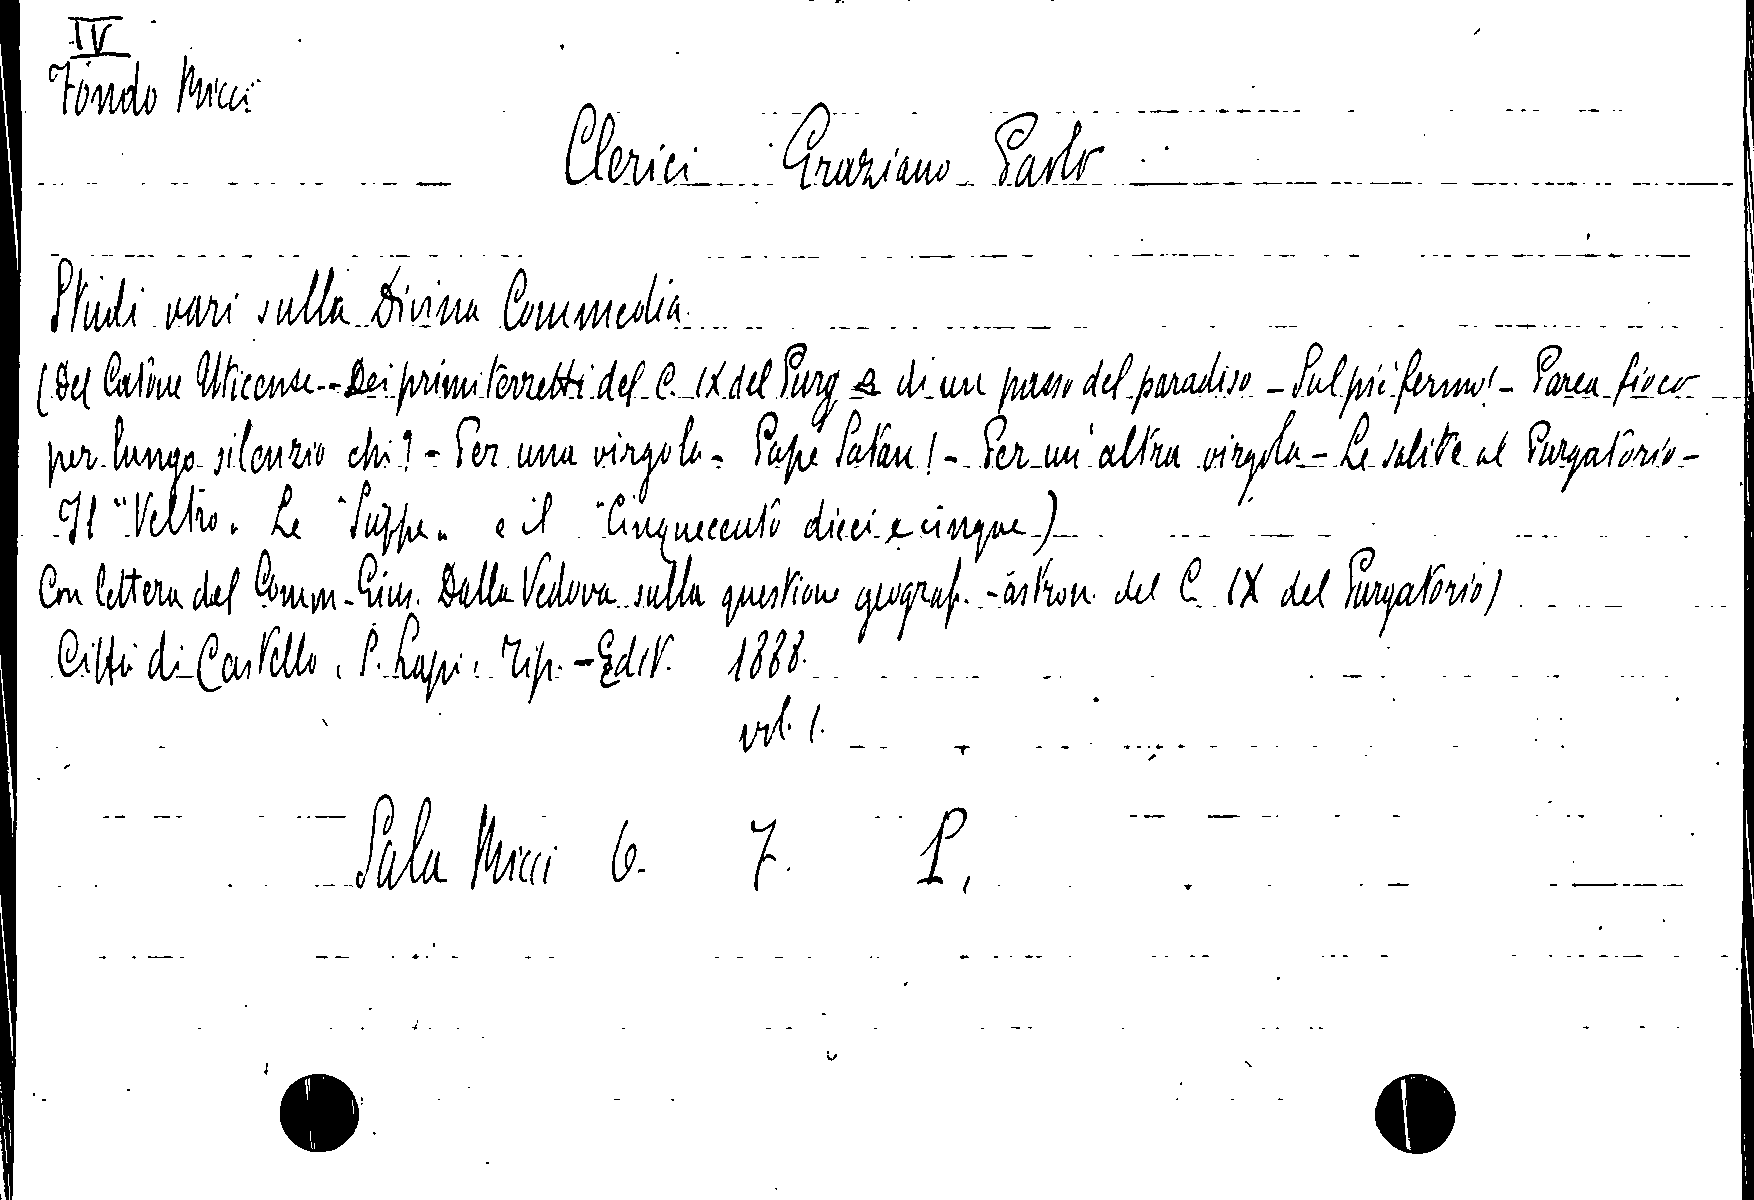 IV
Fondo Micci
Clerici Graziano Paolo
Studi vari sulla Divina Commedia.
(Del Catone Uticense - Dei primi terzetti del C. IX del Purg e di un passo del paradiso - Sul piè fermo! - Parea fioco
per lungo silenzio chi? - Per una virgola - Papé Satan! - Per un'altra virgola - Le salite al Purgatorio -
Il "Veltro" Le "Suppe" e il "Cinquecento dieci e cinque)
Con lettera del Comm. Gius. Dalla Vedova sulla questione geograf. - astron. del C. IX del Purgatorio)
Città di Castello, S. Lapi, Tip. - Edit. 1888.
vol. 1.
Sala Micci 6. 7. P.